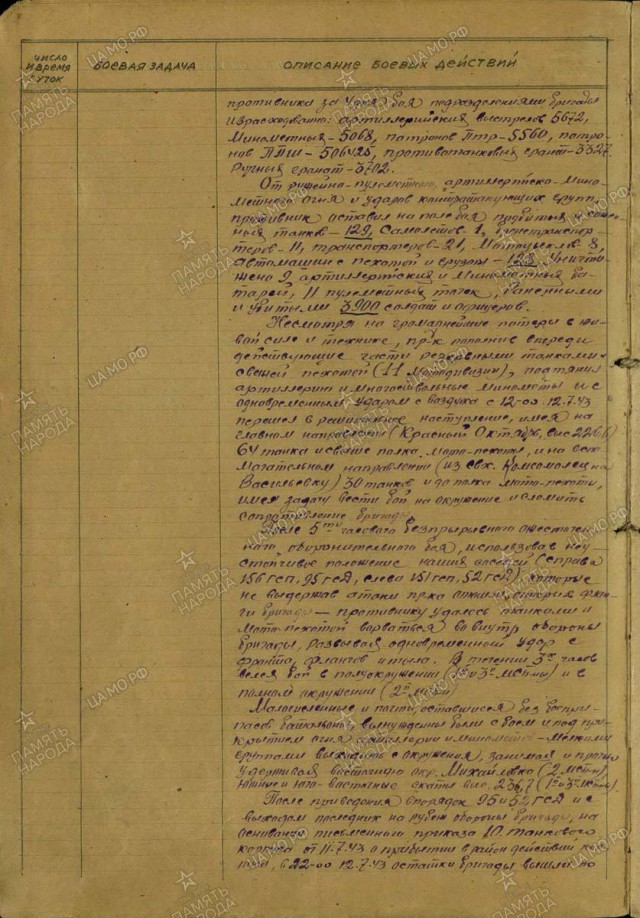 ЧИСЛО
И ВРЕМЯ
СУТОК
БОЕВАЯ ЗАДАЧА
ОПИСАНИЕ БОЕВЫХ ДЕЙСТВИЙ
противника за 4 дня боя подразделениями бригады
израсходовано: артиллерийских выстрелов 5672,
Минометных - 5068, патронов ПТР - 5560, патро-
нов ППШ - 506425, противотанковых гранат - 3327.
Ручных гранат - 3702.
От ружейно-пулеметного, артиллерийско-мино-
метного огня и ударов контратакующих групп,
противник оставил на поле боя подбитых и сожжен-
ных танков - 129, Самолетов - 1, бронетранспор-
теров - 11, транспортеров - 21, Мотоциклов - 8,
автомашин с пехотой и грузом - 123. Уничто-
жено 9 артиллерийских и минометных ба-
тарей, 11 пулеметных точек, ранеными
и убитыми 3900 солдат и офицеров.
Несмотря на громаднейшие потери в жи-
вой силе и технике, пр-к пополнив впереди
действующие части резервными танками и
свежей пехотой (11 Мотодивизии), подтянул
артиллерию и многоствольные минометы и с
одновременным ударом с воздуха с 12-00 12.7.43
перешел в решительное наступление, имея на
главном направлении (Красный Октябрь, выс 226.6)
64 танка и свыше полка мото-пехоты, и на вспо-
могательном направлении (из свх. Комсомолец на
Васильевку) 30 танков и до полка мото-пехоты,
имея задачу вести бой на окружение и сломить
сопротивление бригады.
После 5ти часового безпрерывного ожесточен-
ного, оборонительного боя, использовав неу-
стойчивое положение наших соседей (справа
156 гсп, 95 гсд, слева 151 гсп, 52 гсд) которые
не выдержав атаки пр-ка открыли флан-
ги бригады - противнику удалось танками и
мото-пехотой ворваться во внутрь обороны
бригады, развивая одновременный удар с
фронта, флангов и тыла. В течении 3х часов
велся бой в полуокружении (1 и 3 мсб-ны) и в
полном окружении (2 мсб-н)
Малочисленные и почти оставшиеся без боепри-
пасов батальоны, вынуждены были с боем и под при-
крытием огня артиллерии и минометов - мелкими
группами выходить с окружения, занимая и прочно
удерживая восточную окр. Михайловка (2 мсб-н),
южные и юго-восточные скаты выс. 236.7 (1 и 3 мсб-ны).
После приведения в порядок 95 и 52 гсд и с
выходом последних на рубеж обороны бригады, на
основании письменного приказа 10 танкового
корпуса от 11.7.43 о прибытии в район действий кор-
пуса, в 22-00 12.7.43 остатки бригады вышли по
ПАМЯТЬ НАРОДА
ЦАМО.РФ